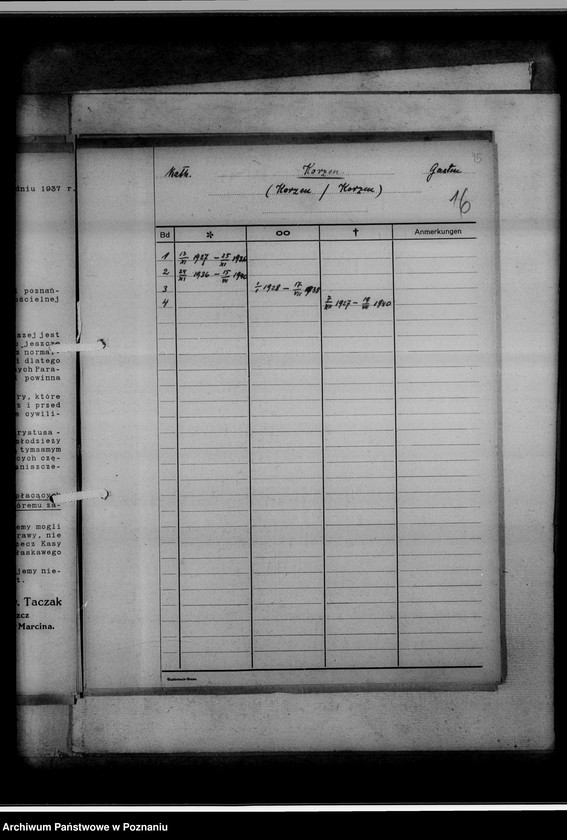 dniu 1937 r.
poznań-
ościelnej
azej jest
jeszcze
norma,-
i dlatego
ych Para-
powinna
ry, które
i przed
cywili-
rystusa -
młodzieży
tymsamym
cych czę-
zniszcze-
płacących
óremu za-
emy mogli
rawy, nie
rzecz Kasy
łaskawego
jemy nie-
t.
. Taczak
szcz
Marcina.
15
Kath. Korzen Gasten
(Korzen / Korzen)
16
Bd * ∞ † Anmerkungen
1 13/XI 1927 – 25/XI 1936
2 24/XI 1936 – 15/VII 1940
3 1/1 1928 – 17/VII 1938
4 2/XII 1927 – 19/VII 1940
Archiwum Państwowe w Poznaniu